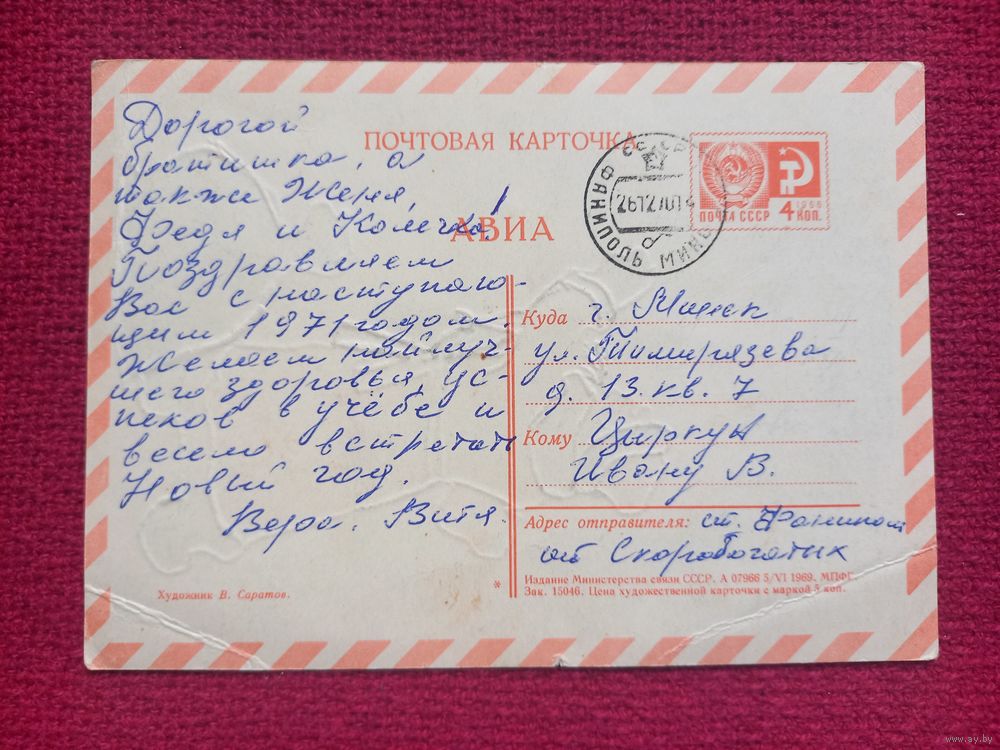 ПОЧТОВАЯ КАРТОЧКА
АВИА
ПОЧТА СССР
4 КОП.
1966
ФАНИПОЛЬ
Дорогой
братишка, а
также Женя,
Федя и Колечка!
Поздравляем
Вас с наступаю-
щим 1971 годом.
Желаем наилуч-
шего здоровья, ус-
пехов в учёбе и
весело встретить
Новый год.
Вера. Витя.
Художник В. Саратов.
Куда г. Минск
ул. Тимирязева
д. 13. кв. 7
Кому Циркун
Ивану В.
Адрес отправителя: ст. Фанипол
от Скоробогатых
* Издание Министерства связи СССР. А 07966 5/VI 1969. МПФГ.
Зак. 15046. Цена художественной карточки с маркой 5 коп.
www.ay.by